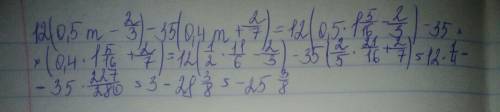 12(0,5m - 2/3) - 35(0,4m + 2/7) = 12(0,5 · 1 5/6 - 2/3) - 35 ×
× (0,4 · 1 5/16 + 2/7) = 12(1/2 · 11/6 - 2/3) - 35(2/5 · 21/16 + 2/7) = 12 · 1/4 -
- 35 · 227/280 = 3 - 28 3/8 = -25 3/8